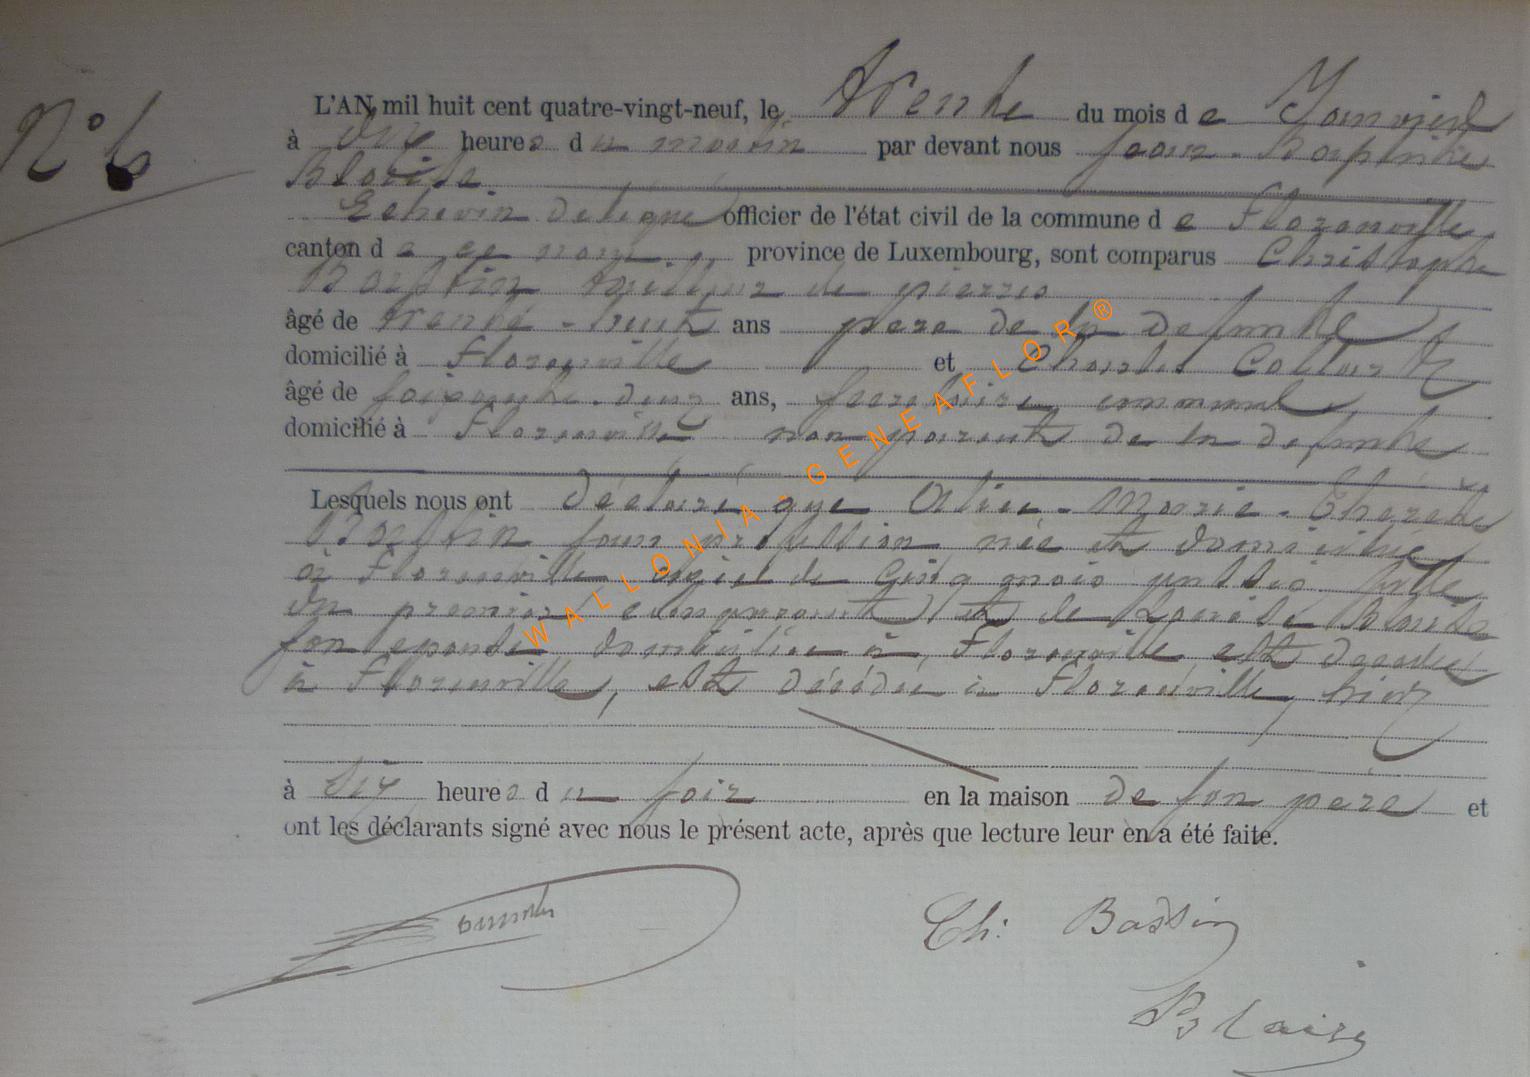 N° 6
L'AN mil huit cent quatre-vingt-neuf, le Trente du mois de Janvier
à dix heures du matin par devant nous Jean-Baptiste
Blaise
Echevin délégué officier de l'état civil de la commune de Florenville
canton de ce nom, province de Luxembourg, sont comparus Christophe
Bastin tailleur de pierres
âgé de trente-huit ans père de la defunte
domicilié à Florenville et Charles
âgé de soixante-deux ans, secrétaire communal
domicilié à Florenville non parent de la defunte
Lesquels nous ont déclaré que Marie-Thérèse
Bastin sans profession née et domiciliée
à Florenville agée de cinq mois fille
du premier comparant et de
son epouse domiciliée à Florenville est décédée
à Florenville, est décédée à Florenville, hier
à six heures du soir en la maison de son père et
ont les déclarants signé avec nous le présent acte, après que lecture leur en a été faite.
Ch: Bastin
Blaise
WALLONIA-GENEAFLOR ®